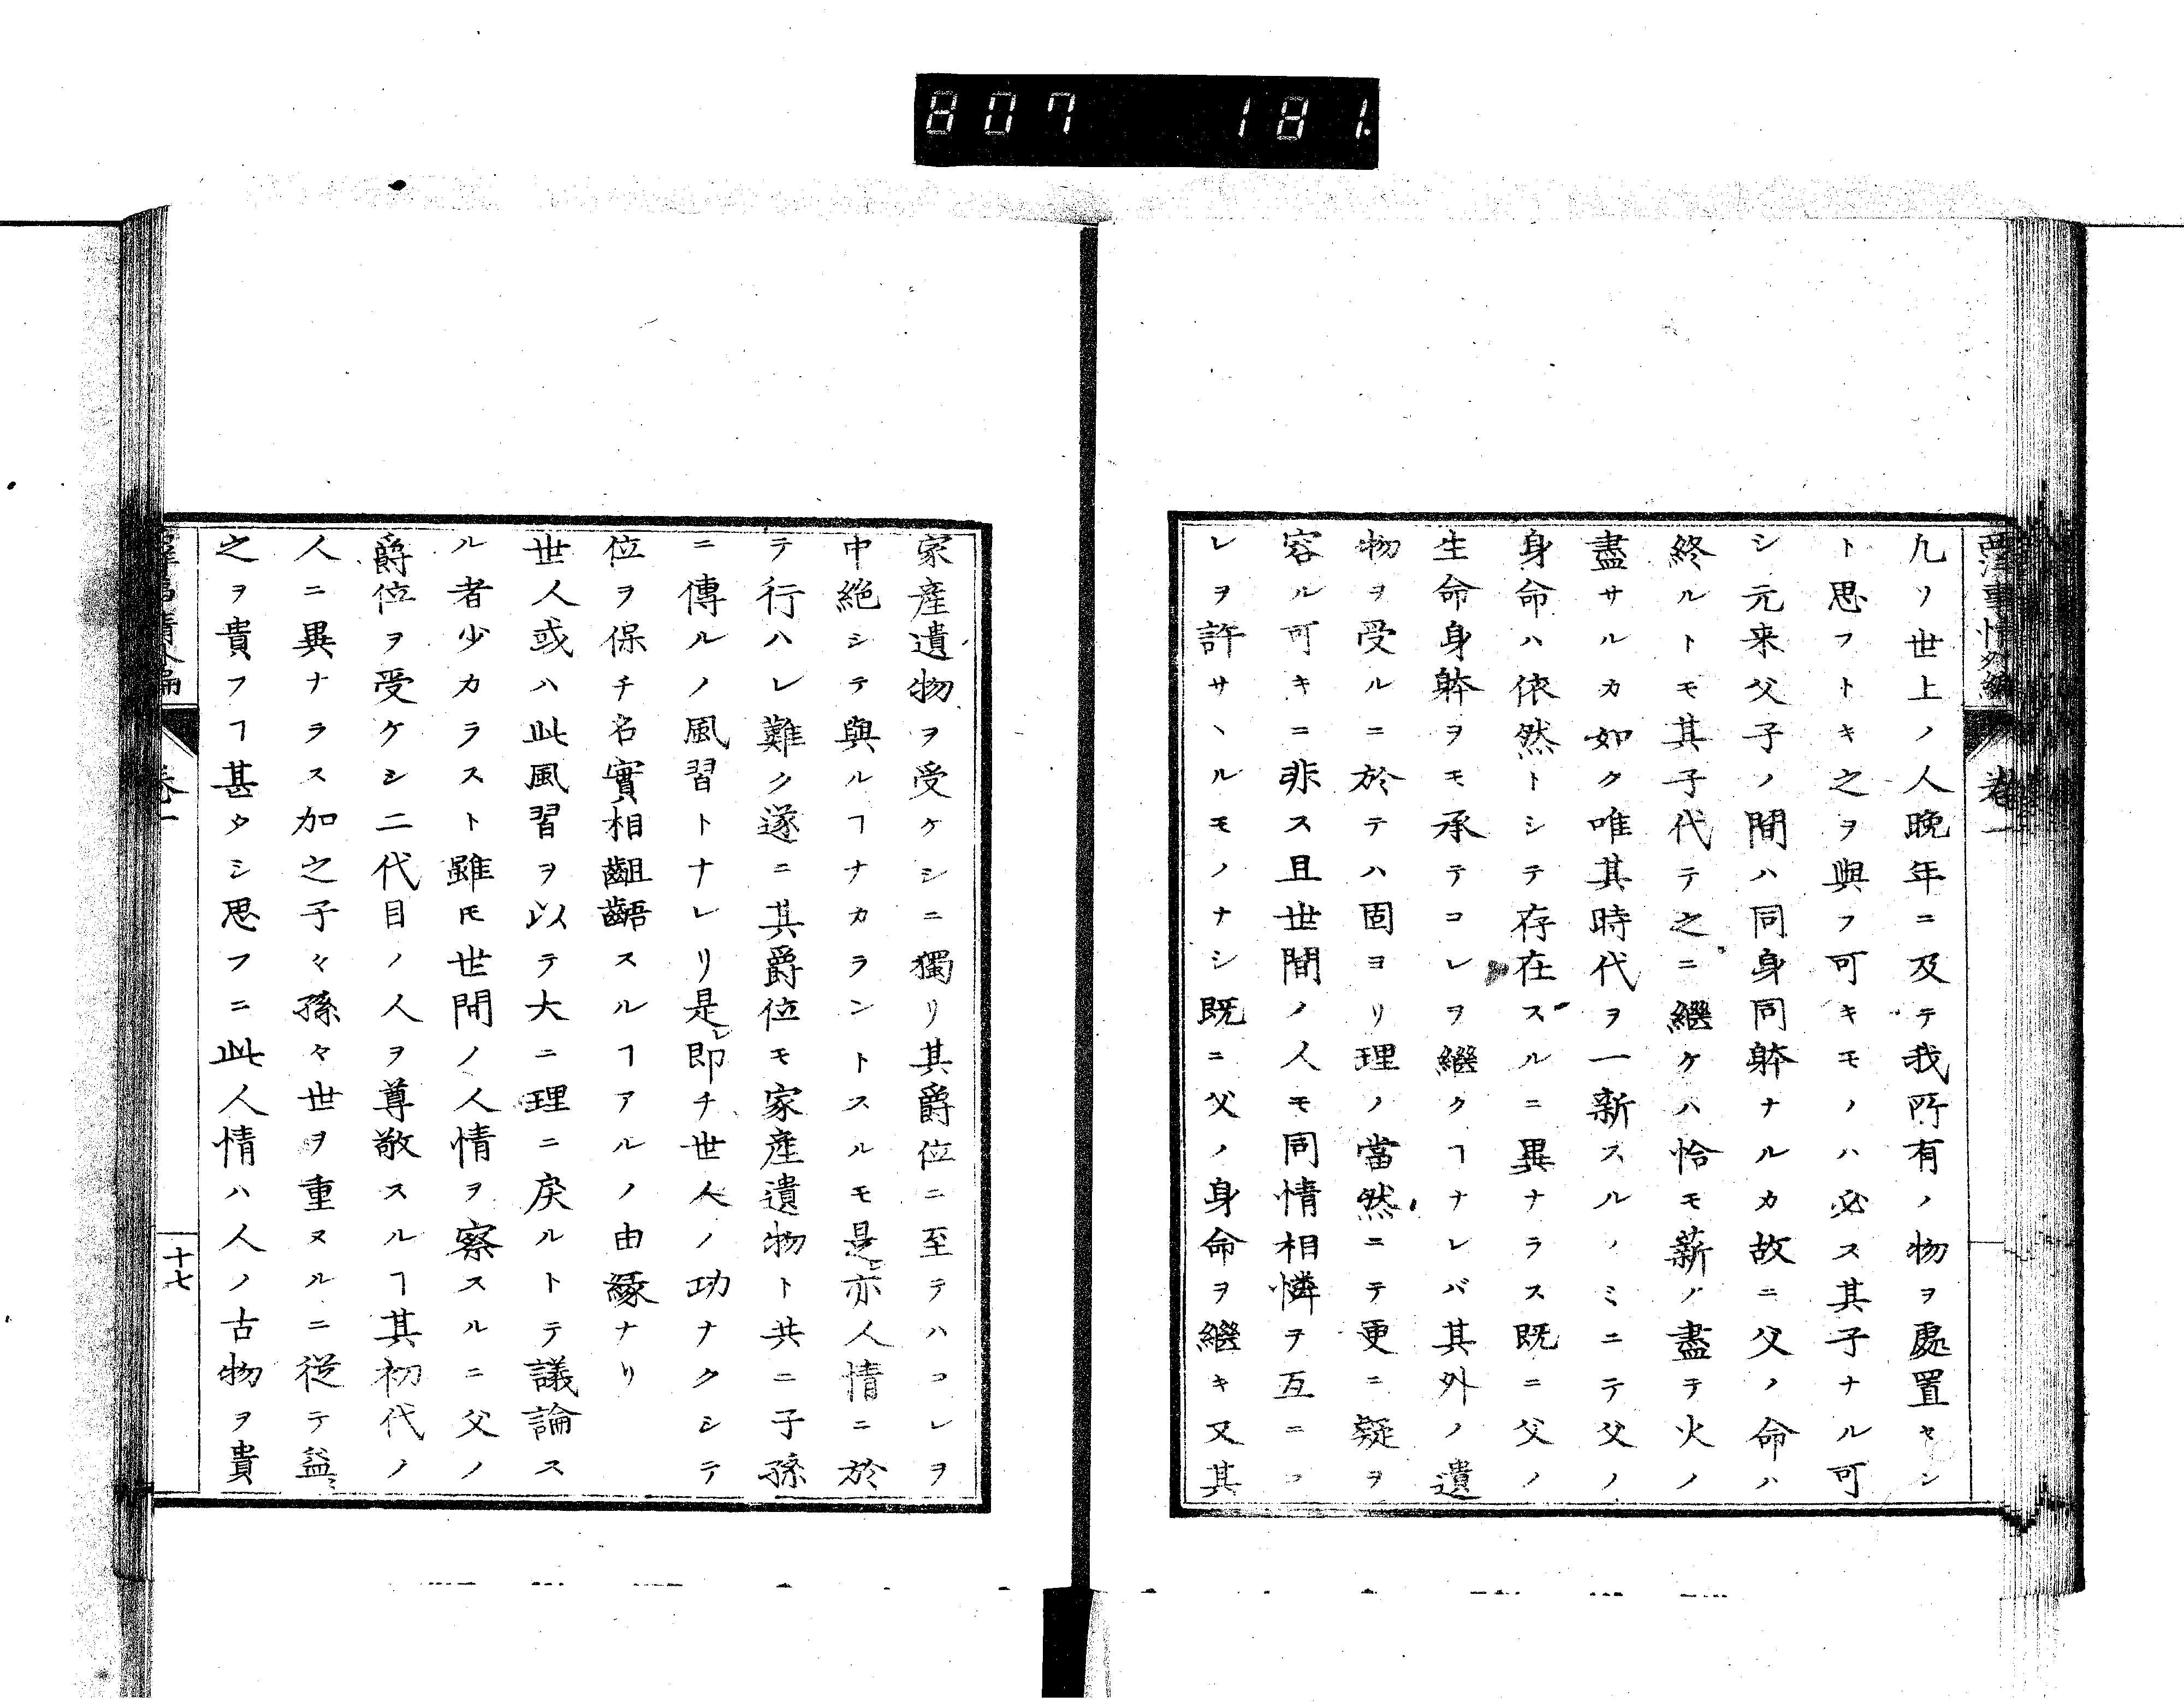 807 181.
西洋事情外編
卷一
凡ソ世上ノ人晩年ニ及テ我所有ノ物ヲ處置セシ
ト思フトキ之ヲ與フ可キモノハ必ス其子ナル可
シ元来父子ノ間ハ同身同躰ナルカ故ニ父ノ命ハ
終ルトモ其子代テ之ニ繼ケハ恰モ薪ノ盡テ火ノ
盡サルカ如ク唯其時代ヲ一新スルノミニテ父ノ
身命ハ依然トシテ存在スルニ異ナラス既ニ父ノ
生命身躰ヲモ承テコレヲ繼クヿナレバ其外ノ遺
物ヲ受ルニ於テハ固ヨリ理ノ當然ニテ更ニ疑ヲ
容ル可キニ非ス且世間ノ人モ同情相憐テ互ニコ
レヲ許サヽルモノナシ既ニ父ノ身命ヲ繼キ又其
家産遺物ヲ受ケシニ獨リ其爵位ニ至テハコレヲ
中絶シテ與ルヿナカラントスルモ是レ亦人情ニ於
テ行ハレ難ク遂ニ其爵位モ家産遺物ト共ニ子孫
ニ傳ルノ風習トナレリ是レ即チ世人ノ功ナクシテ
位ヲ保チ名實相齟齬スルヿアルノ由縁ナリ
世人或ハ此風習ヲ以テ大ニ理ニ戻ルトテ議論ス
ル者少カラスト雖𪜈世間ノ人情ヲ察スルニ父ノ
爵位ヲ受ケシ二代目ノ人ヲ尊敬スルヿ其初代ノ
人ニ異ナラス加之子々孫々世ヲ重ヌルニ從テ益〻
之ヲ貴フヿ甚タシ思フニ此人情ハ人ノ古物ヲ貴
卷一
十七